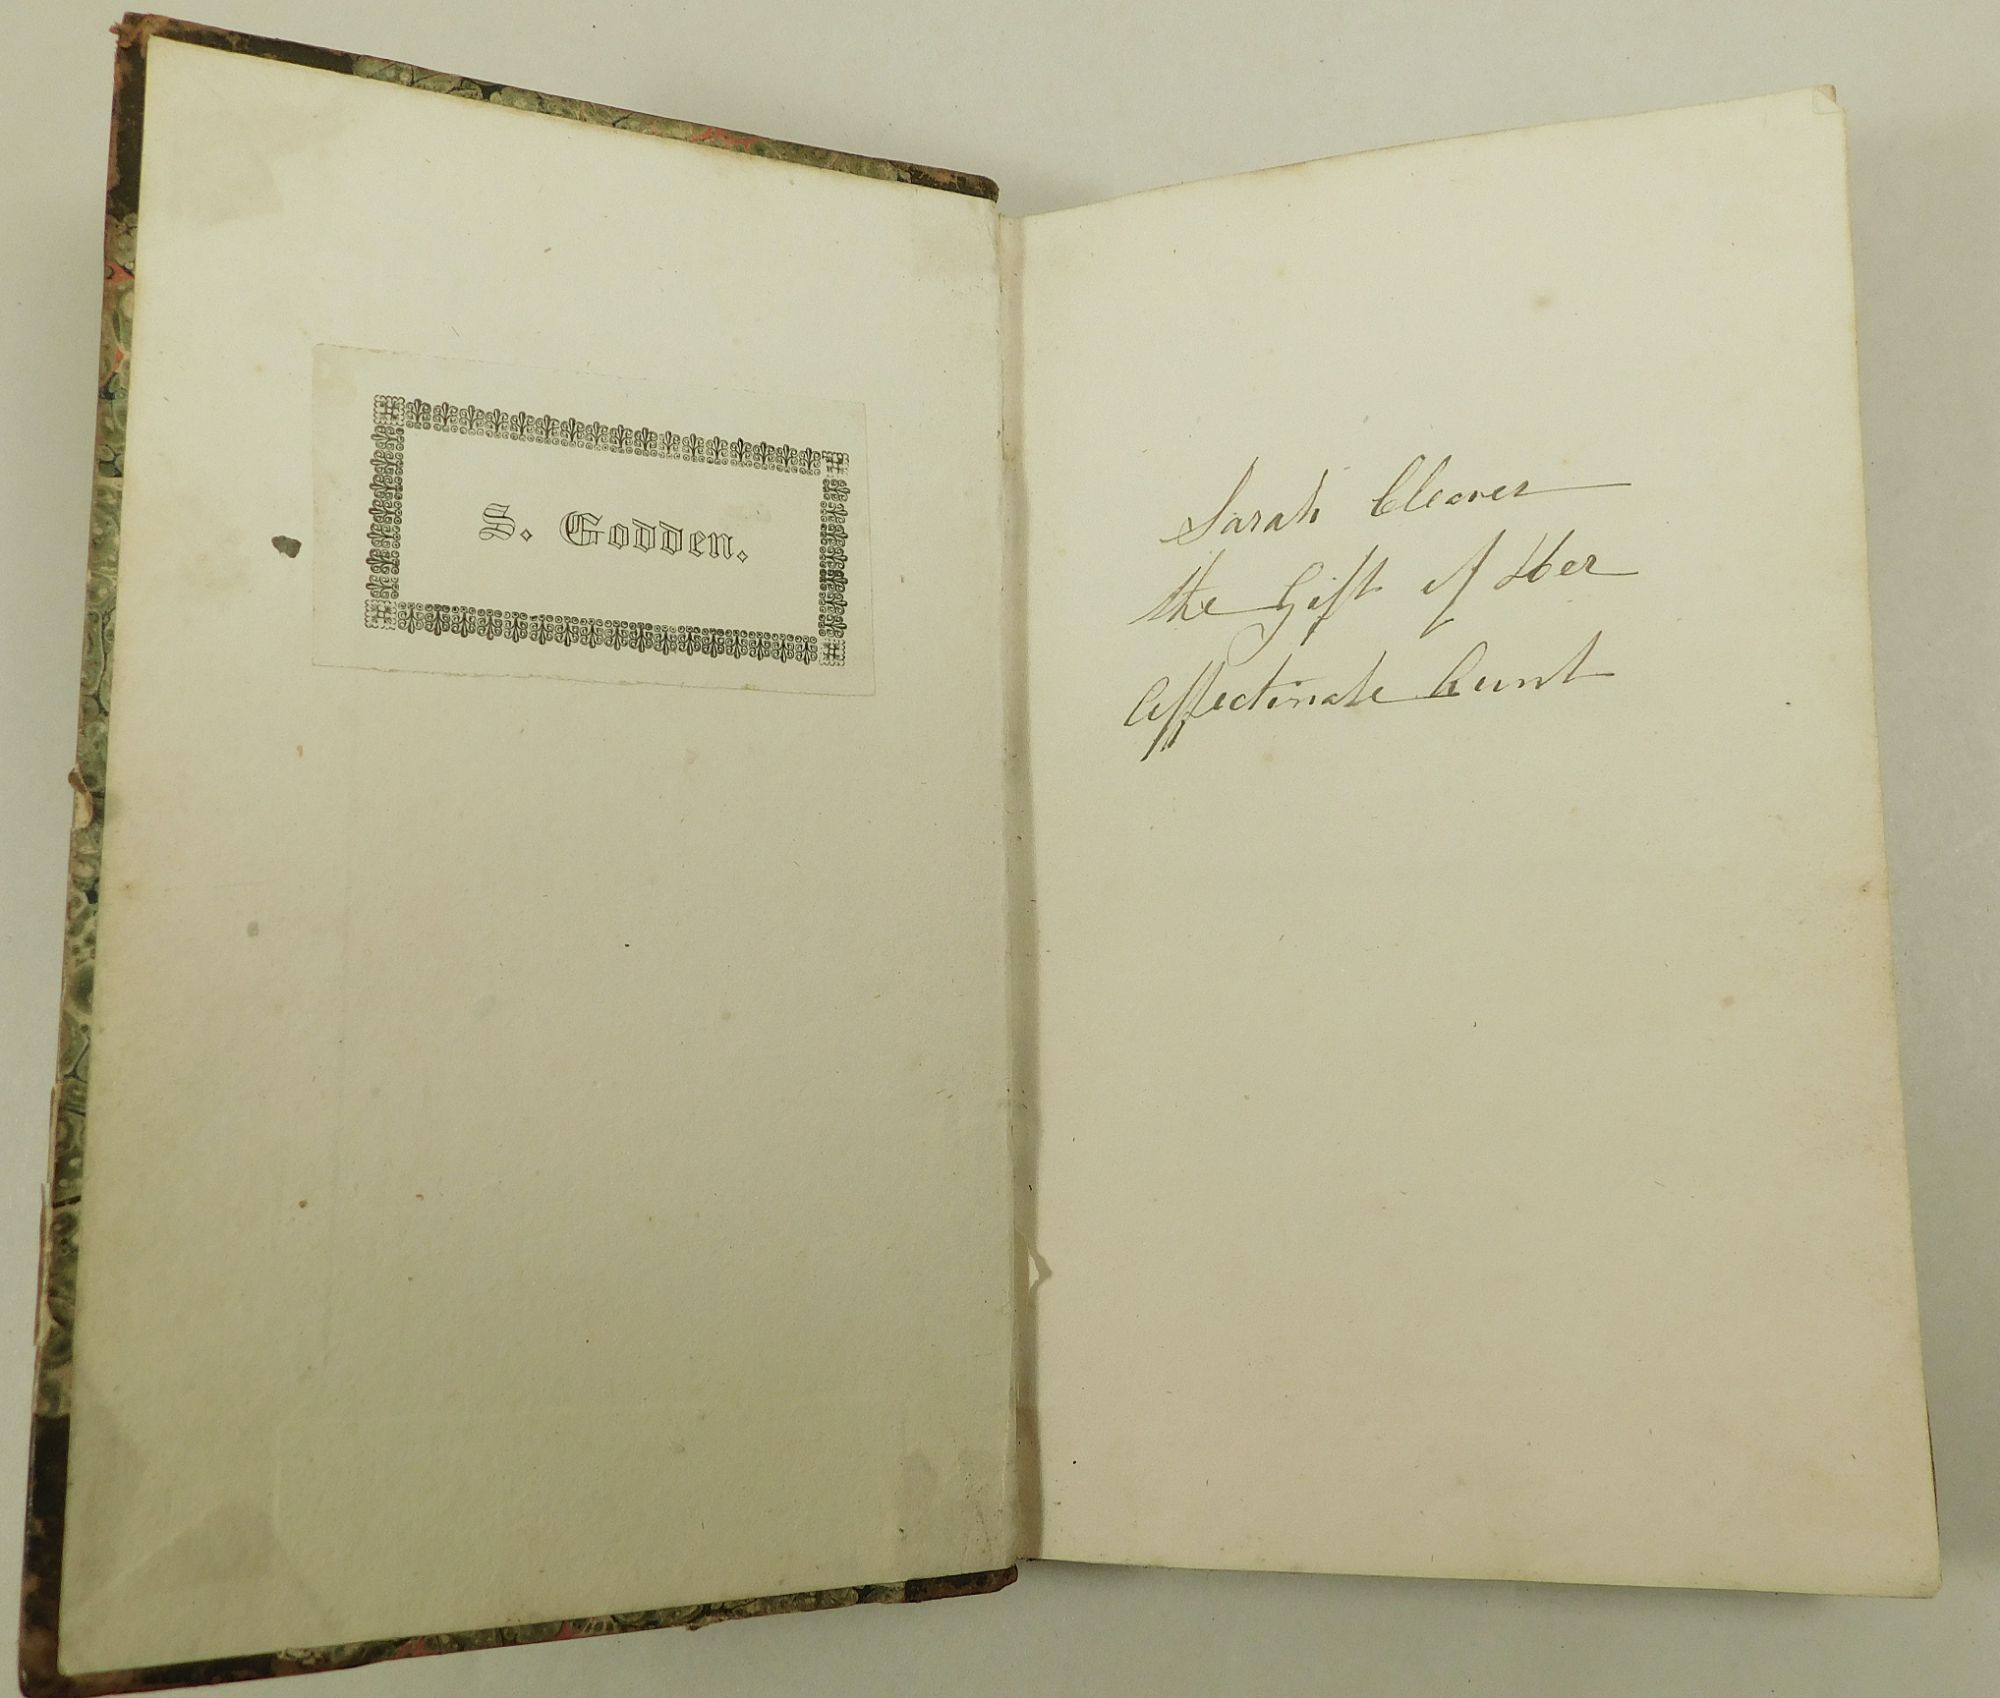 S. Godden.
Sarah Cleaver
the Gift of Her
Affectinate Aunt